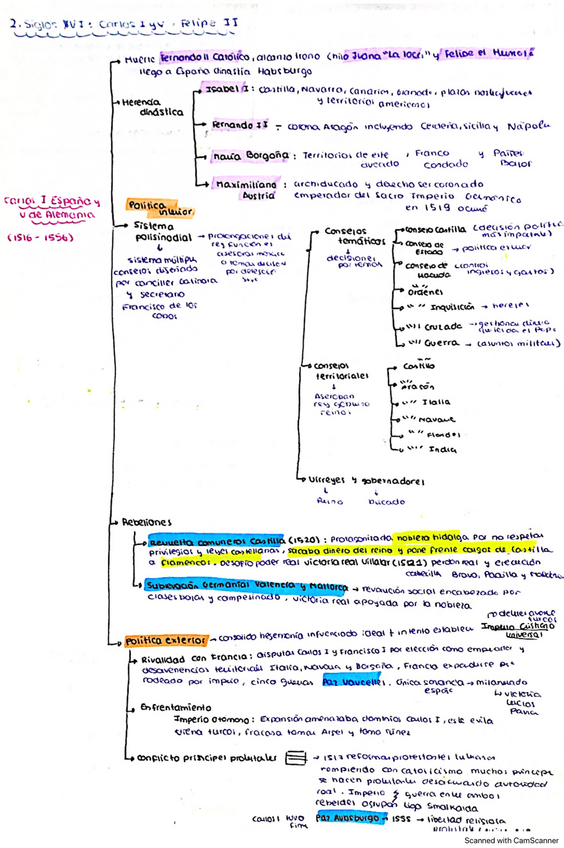 2. Siglos XVI: Carlos I y V - Felipe II
Muerte Fernando II Católico, alcanza trono (hijo Juana "La loca" y Felipe el Hermoso
llego a España dinastía Habsburgo
Herencia
dinástica
Isabel I: Castilla, Navarra, Canarias, Granada, plazas norteafricanas
y territorios americanos
Fernando II - corona Aragón incluyendo Cerdeña, Sicilia y Nápoles
María Borgoña: Territorios de este, Franco y Países
condado Bajos
Maximiliano: archiducado y derecho ser coronado
Austria emperador del Sacro Imperio Germánico
en 1519
Carlos I España y
V de Alemania
(1516 - 1556)
Política
interior
Sistema
polisinodial
sistema múltiple
consejos diseñado
por canciller Gattinara
y secretario
Francisco de los
Cobos
prolongaciones del
rey función es
Consejos
temáticos
decisiones
por temas
Consejo Castilla (decisión política
más importante)
Consejo de
Estado → política exterior
Consejo de (control
Hacienda ingresos y gastos)
"" Órdenes
"" Inquisición → herejes
"" Cruzada → gestiona dinero
"" Guerra → (asuntos militares)
Consejos
territoriales
Asesoran
rey
reinos
Castilla
"" Aragón
"" Italia
"" Navarra
"" Flandes
"" India
Virreyes y gobernadores
Reino ducado
Rebeliones
Revuelta comuneros Castilla (1520): Protagonizada nobleza hidalga por no respetar
privilegios y leyes castellanas, sacaba dinero del reino y pone frente cargos de Castilla
a flamencos. desafío poder real victoria real Villalar (1521) perdón real y ejecución
cabecilla Bravo, Padilla y Maldonado
Sublevación Germanías Valencia y Mallorca → revolución social encabezada por
clases bajas y campesinado, victoria real apoyada por la nobleza
Política exterior → consolidó hegemonía influenciado ideal + intento establecer Imperio Cristiano
universal
Rivalidad con Francia: disputas Carlos I y Francisco I por elección como emperador y
desavenencias territoriales Italia, Navarra y Borgoña, Francia
rodeado por imperio, cinco guerras Paz Vaucelles. Única ganancia → milanesado
españ
victoria
Pavía
Enfrentamiento
Imperio Otomano: Expansión amenazaba dominios Carlos I, este evita
Viena turcos, fracasa tomar Argel y toma Túnez
conflicto príncipes protestantes → 1517 reforma protestantes luterana
rompiendo con catolicismo muchos príncipe
se hacen protestantes desafiando autoridad
real. Imperio guerra entre ambos
rebeldes agrupan Liga Smalkalda
Carlos I tuvo
firmar Paz Augsburgo - 1555 → libertad religiosa
Scanned with CamScanner